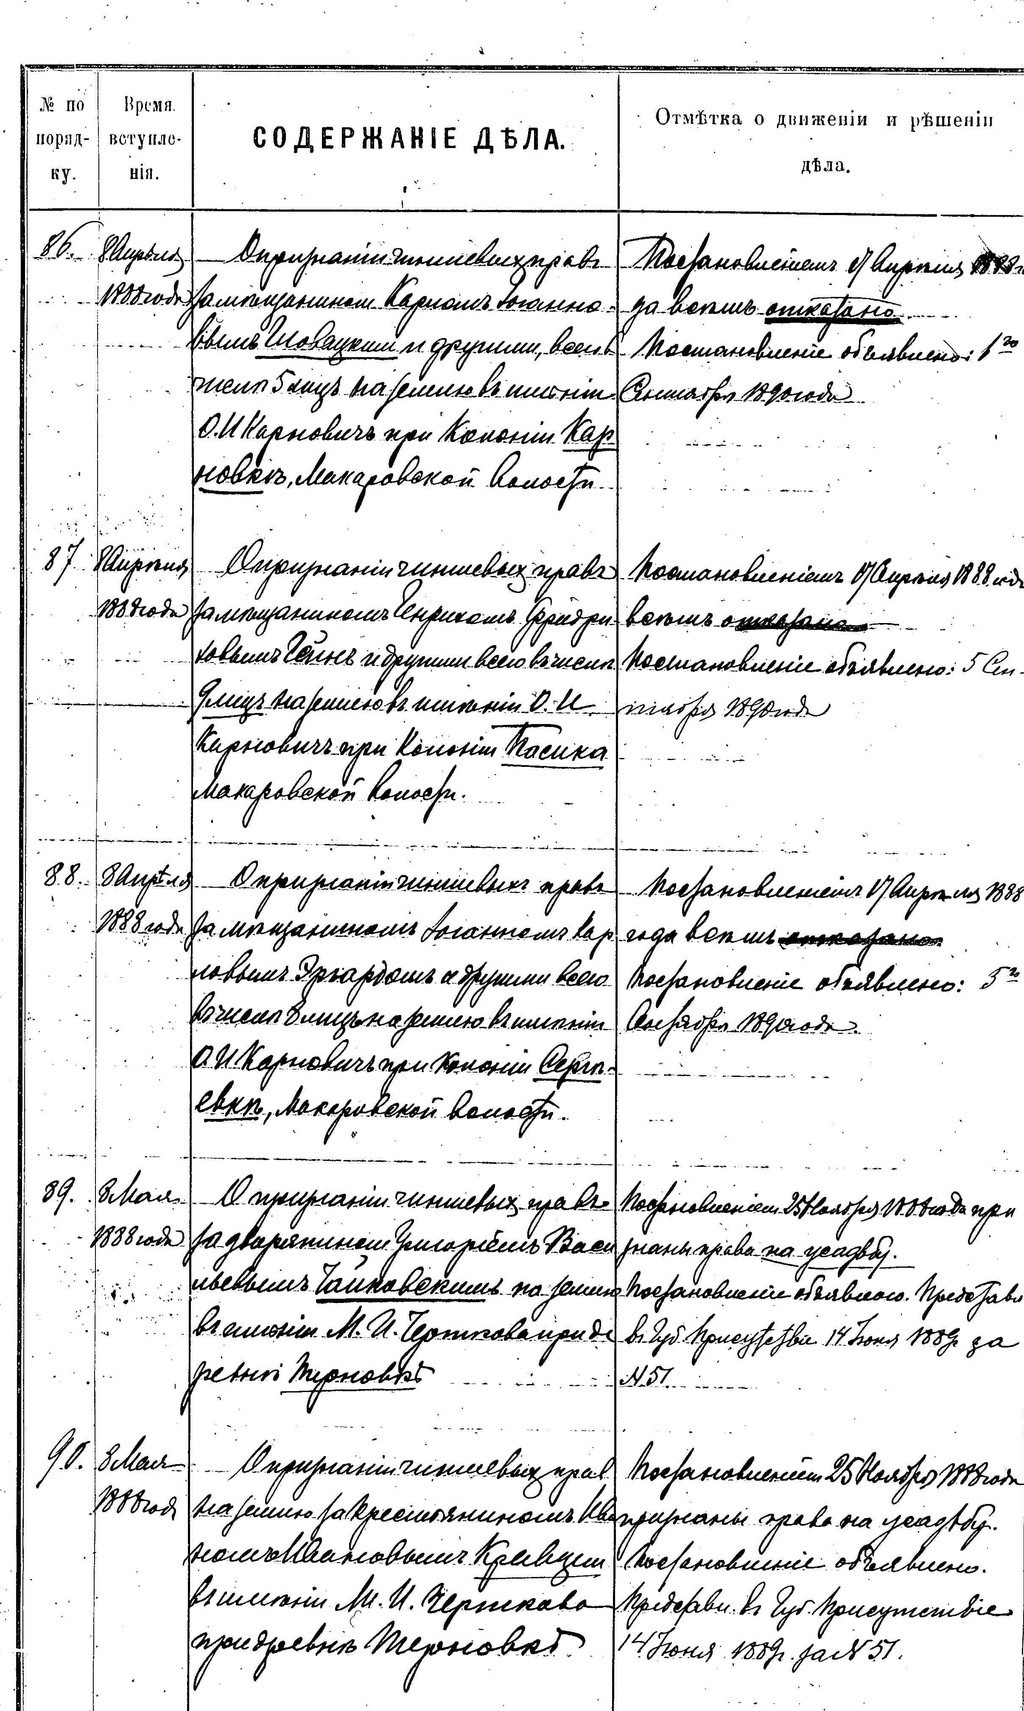 № по порядку.
Время вступленія.
СОДЕРЖАНІЕ ДѢЛА.
Отмѣтка о движеніи и рѣшеніи
дѣла.
86.
8 Апрѣля
1888 года
О признаніи чиншевыхъ правъ
за мѣщаниномъ Карломъ Іоганно-
вымъ и другими, всего въ
числѣ 5 лицъ на землю въ имѣніи
О. И Карповичъ при Колоніи Кар
повкѣ, Макаровской Волости.
Постановленіемъ 17 Апрѣля 1888 го
да всѣмъ отказано.
Постановленіе объявлено: 1го
Сентября 1890 года
87
8 Апрѣля
1888 года
О признаніи чиншевыхъ правъ
за мѣщаниномъ Генрихомъ Фридри
ховымъ Гейнъ и другими всего въ числѣ
9 лицъ на землю въ имѣніи О. И.
Карповичъ при Колоніи Пасика
Макаровской Волости.
Постановленіемъ 17 Апрѣля 1888 года
всѣмъ отказано
Постановленіе объявлено: 5 Сен-
тября 1890 года
88.
8 Апрѣля
1888 года
О признаніи чиншевыхъ правъ
за мѣщаниномъ Іоганномъ Кар
ловымъ Эргардомъ и другими всего
въ числѣ 8 лицъ на землю въ имѣніи
О. И Карповичъ при Колоніи Сергѣ-
евкѣ, Макаровской Волости.
Постановленіемъ 17 Апрѣля 1888
года всѣмъ отказано
Постановленіе объявлено: 5го
Сентября 1890 года.
89.
8 Мая
1888 года
О признаніи чиншевыхъ правъ
за дворяниномъ Григоріемъ Васи
льевымъ Чайковскимъ на землю
въ имѣніи М. И. Черткова при де
ревнѣ Терновкѣ
Постановленіемъ 25 Ноября 1888 года при
знаны права на усадьбу.
Постановленіе объявлено. Представл
въ Губ. Присутствіе 14 Іюня 1889г за
№ 51.
90.
8 Мая
1888 года
О признаніи чиншевыхъ правъ
на землю за крестьяниномъ Ива
номъ Ивановымъ Кравцемъ
въ имѣніи М. И. Черткова
при деревнѣ Терновкѣ.
Постановленіемъ 25 Ноября 1888 года
признаны права на усадьбу.
Постановленіе объявлено.
Представл. въ Губ. Присутствіе
14 Іюня 1889г. за № 51.